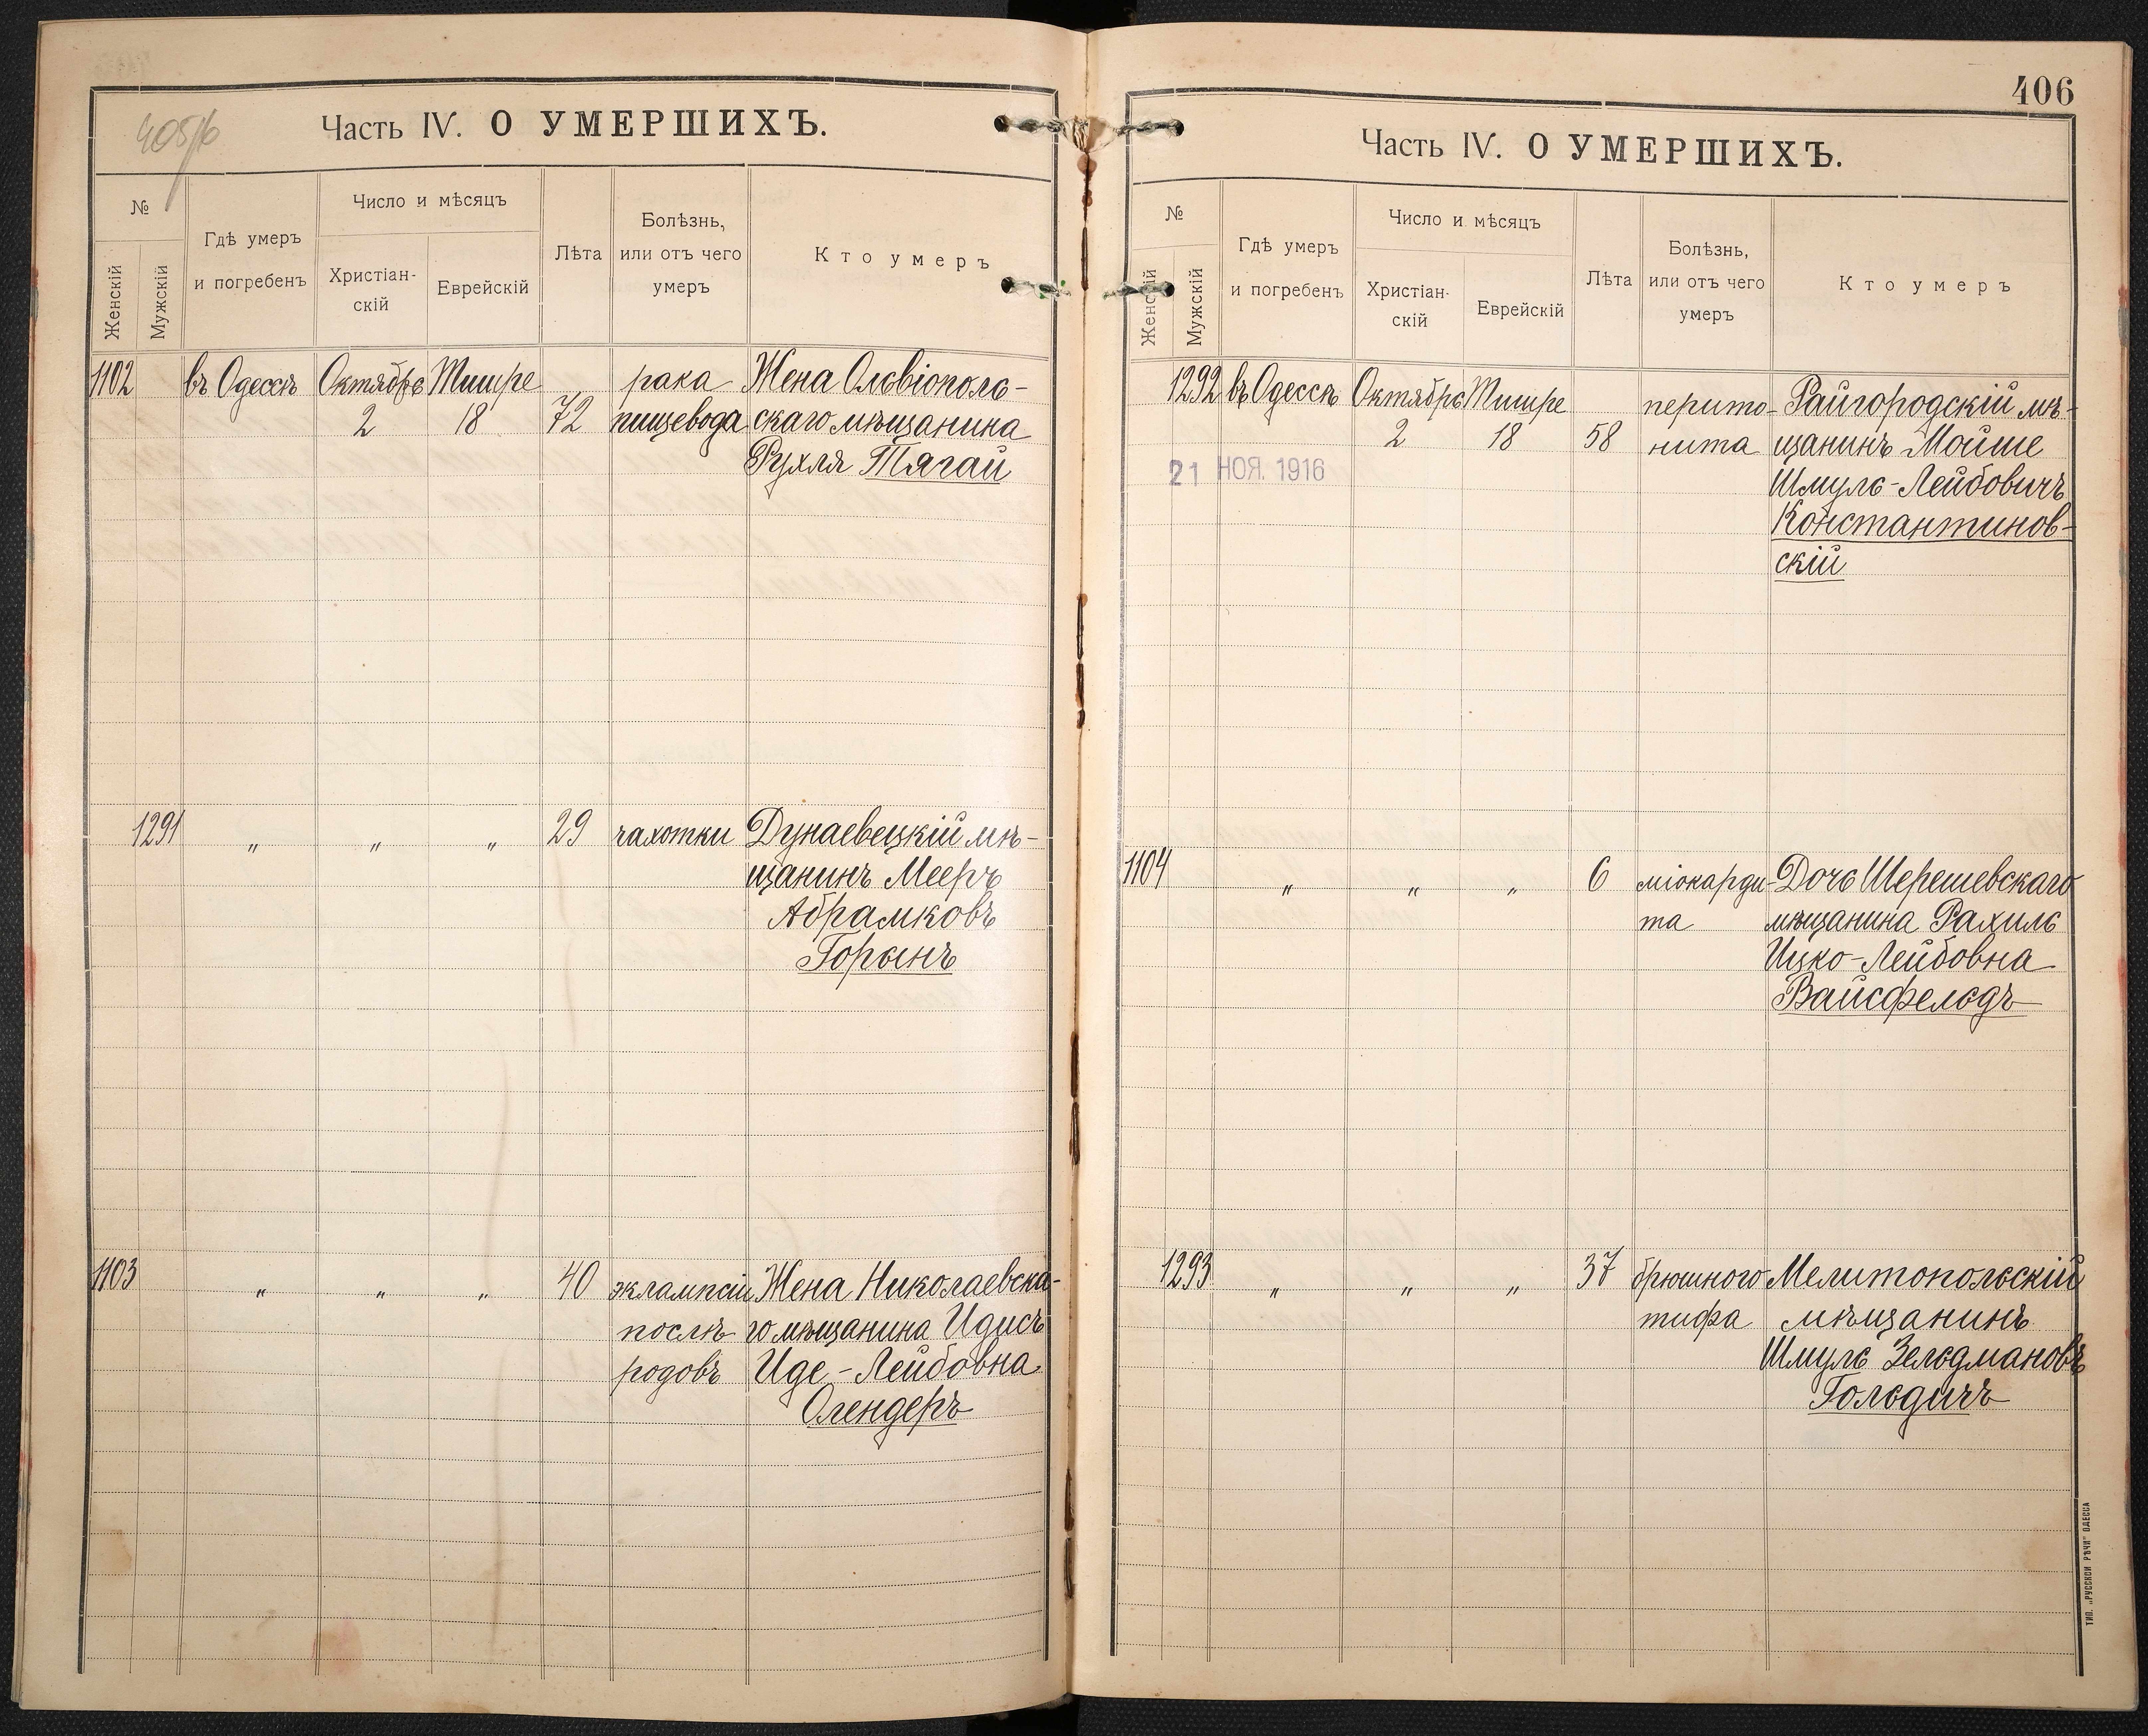 405/б
Часть IV. О УМЕРШИХЪ.
№
Женскій
Мужскій
Гдѣ умеръ
и погребенъ
Число и мѣсяцъ
Христіан-
скій
Еврейскій
Лѣта
Болѣзнь,
или отъ чего
умеръ
Кто умеръ
1102 въ Одессѣ Октябрь Тишре рака Жена Ольвіополь-
2 18 72 пищевода скаго мѣщанина
Рухля Тягай
1291 „ „ „ 29 чахотки Дунаевецкій мѣ-
щанинъ Мееръ
Абрамковъ
Горынъ
1103 „ „ „ 40 эклампсіи Жена Николаевска-
послѣ го мѣщанина Идисъ
родовъ Иде-Лейбовна
Олендеръ
406
Часть IV. О УМЕРШИХЪ.
№
Женскій
Мужскій
Гдѣ умеръ
и погребенъ
Число и мѣсяцъ
Христіан-
скій
Еврейскій
Лѣта
Болѣзнь,
или отъ чего
умеръ
Кто умеръ
1292 въ Одессѣ Октябрь Тишре перито- Райгородскій мѣ-
2 18 58 нита щанинъ Мойше
21 НОЯ. 1916 Шмуль-Лейбовичъ
Константинов-
скій
1104 „ „ „ 6 міокарди- Дочь Шерешевскаго
та мѣщанина Рахиль
Ицко-Лейбовна
Вайсфельдъ
1293 „ „ „ 37 брюшного Мелитопольскій
тифа мѣщанинъ
Шмуль Зельдмановъ
Гольдичъ
ТИП. „РУССКОЙ РѢЧИ" ОДЕССА